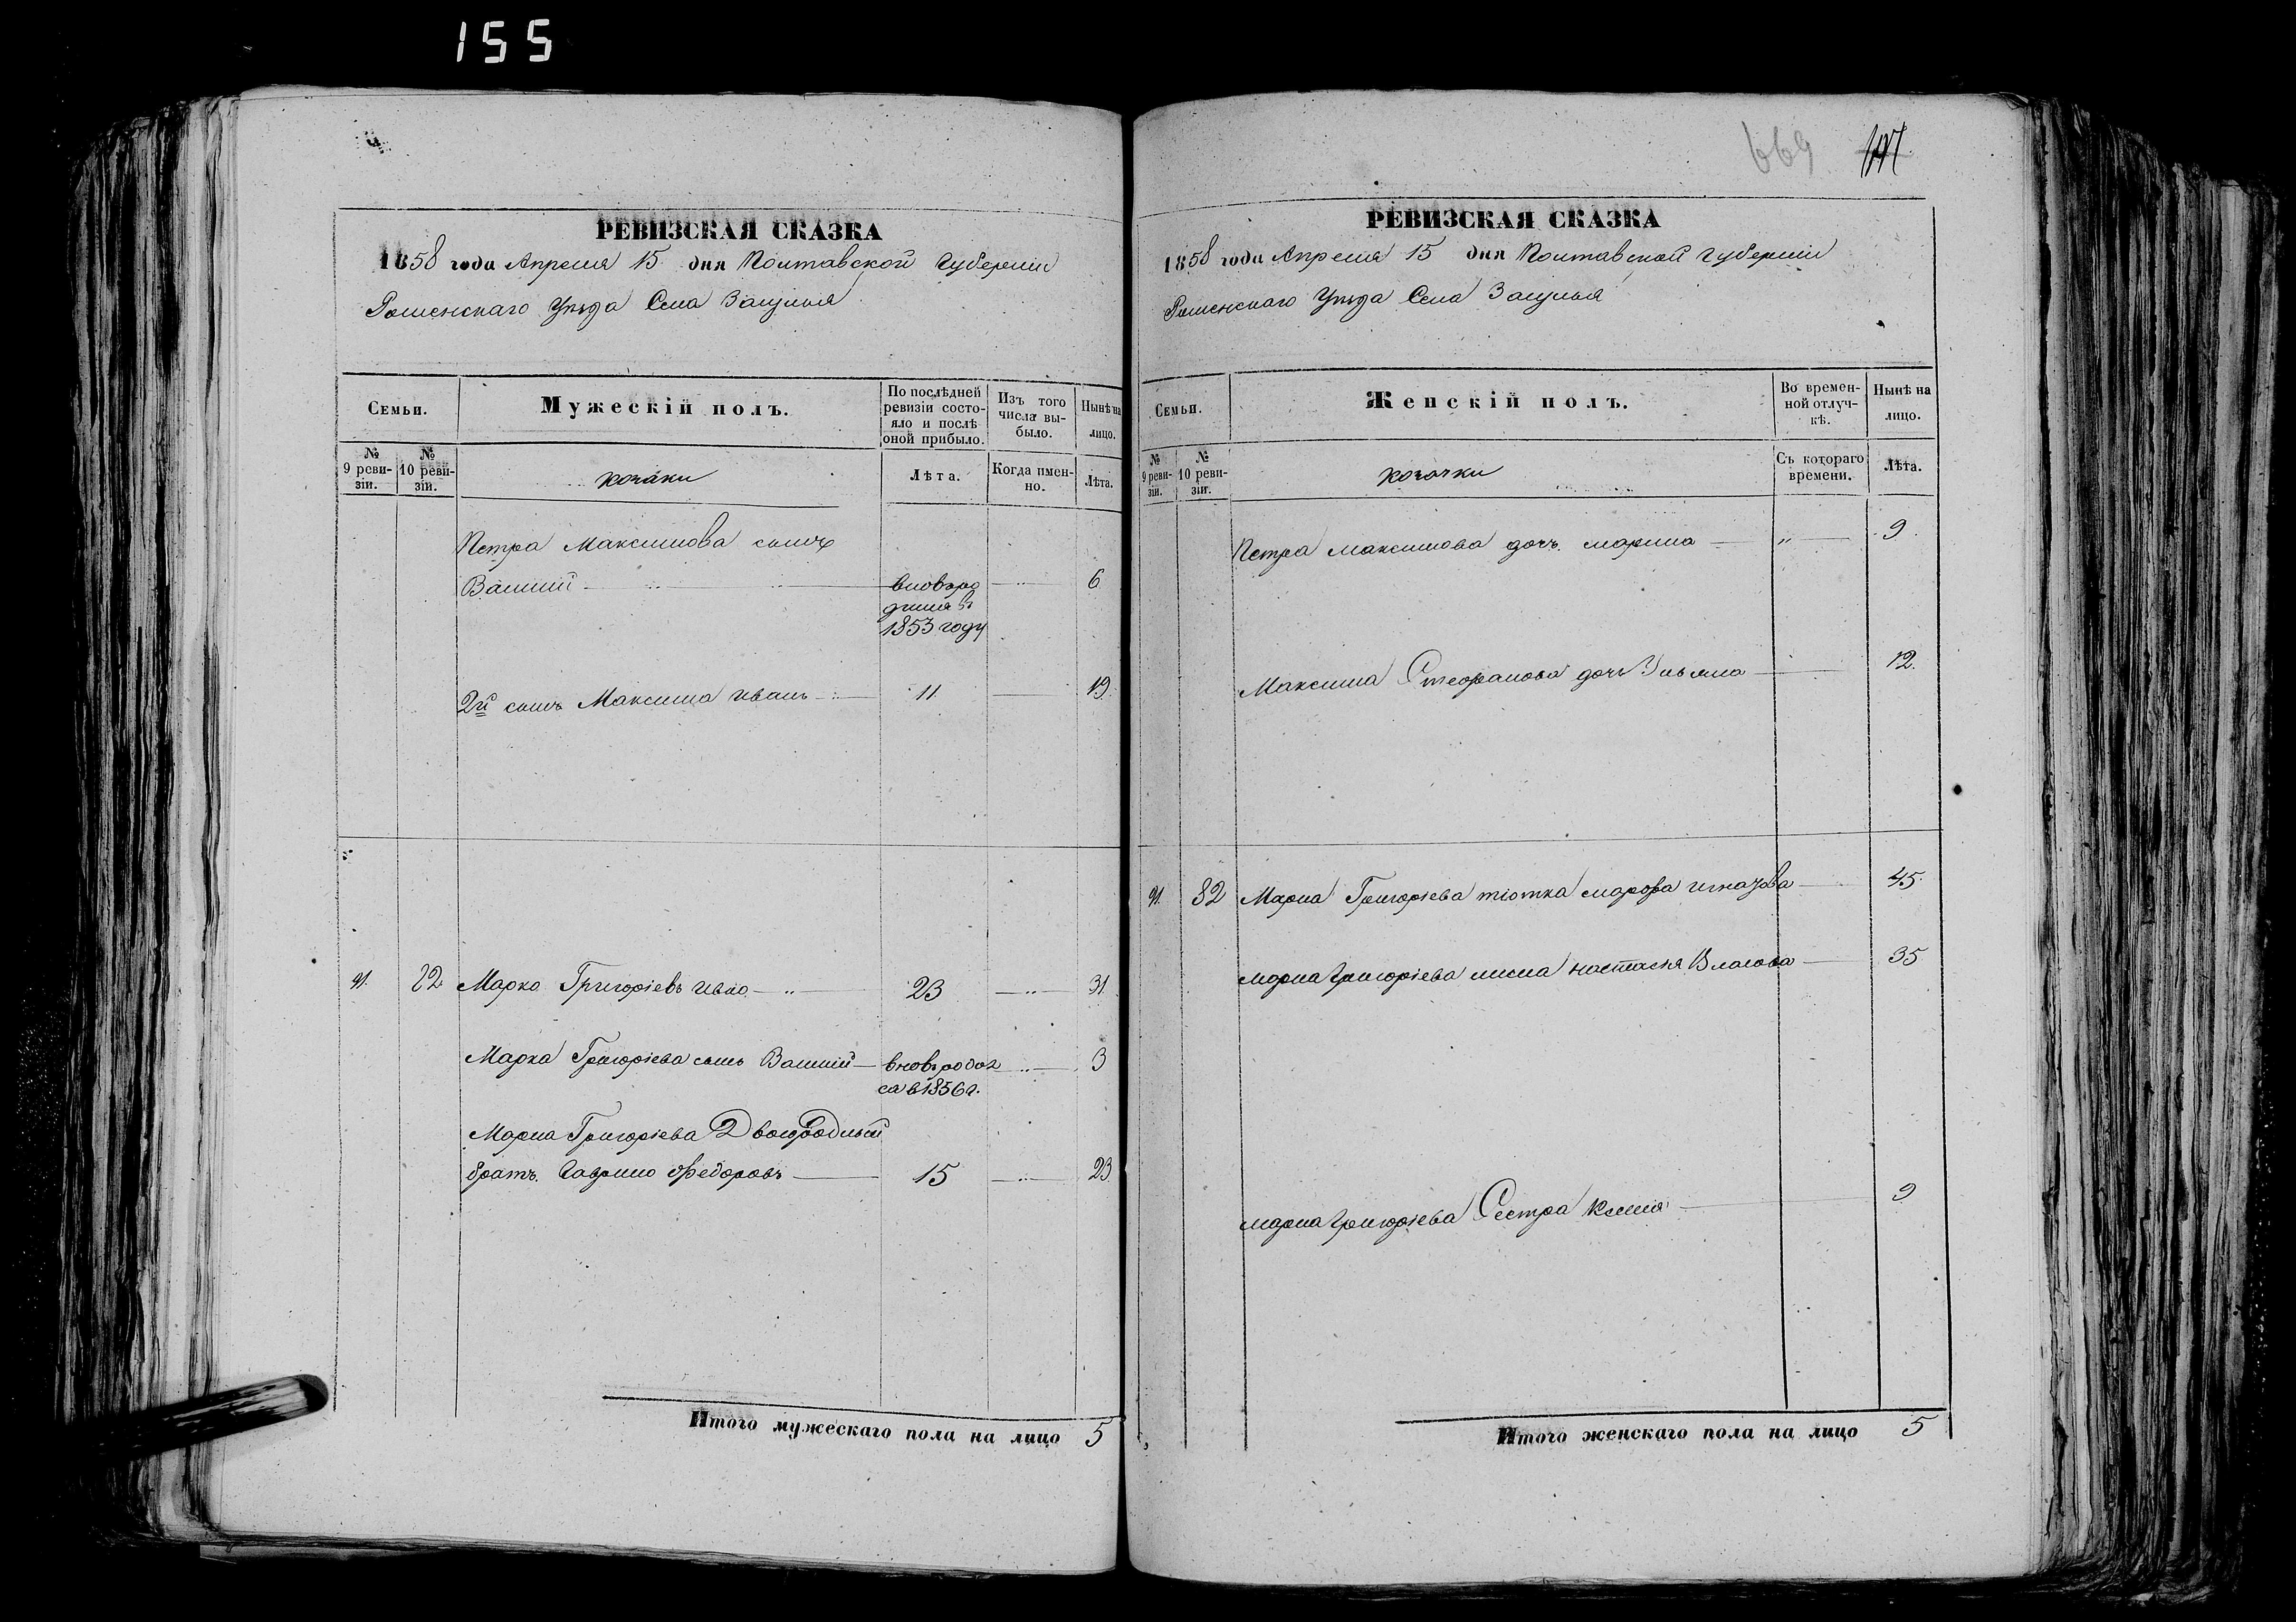 155
669
РЕВИЗСКАЯ СКАЗКА
1858 года Апреля 15 дня Полтавской Губернии
Роменскаго Уѣзда Села Загулья
Семьи.
Мужескій полъ.
По послѣдней ревизіи состояло и послѣ оной прибыло.
Изъ того числа выбыло.
Нынѣ на лицо.
№ 9 ревизіи.
№ 10 ревизіи.
козаки
Лѣта.
Когда именно.
Лѣта.
Петра Максимова сынъ
Василій вновьро 6
дился въ
1853 году
2й сынъ Максима Иванъ 11 19
91. 82 Марко Григоріевъ Ивко 23 31
Марка Григоріева сынъ Василій вновь родил 3
ся в 1856 г.
Марка Григоріева Двоюродный
братъ Гаврило Федоровъ 15 23
Итого мужескаго пола на лицо 5
РЕВИЗСКАЯ СКАЗКА
1858 года Апреля 15 дня Полтавской Губерніи
Роменскаго Уѣзда Села Загулья
Семьи.
Женскій полъ.
Во временной отлучкѣ.
Нынѣ на лицо.
№ 9 ревизіи.
№ 10 ревизіи.
козачки
Съ котораго времени.
Лѣта.
Петра Максимова дочь марина " 9
Максима Стефанова дочь 12
91. 82 Марка Григоріева тіотка марфа игназова 45
марка григоріева жена настасія Власова 35
марка григоріева Сестра Ксенія 9
Итого женскаго пола на лицо 5